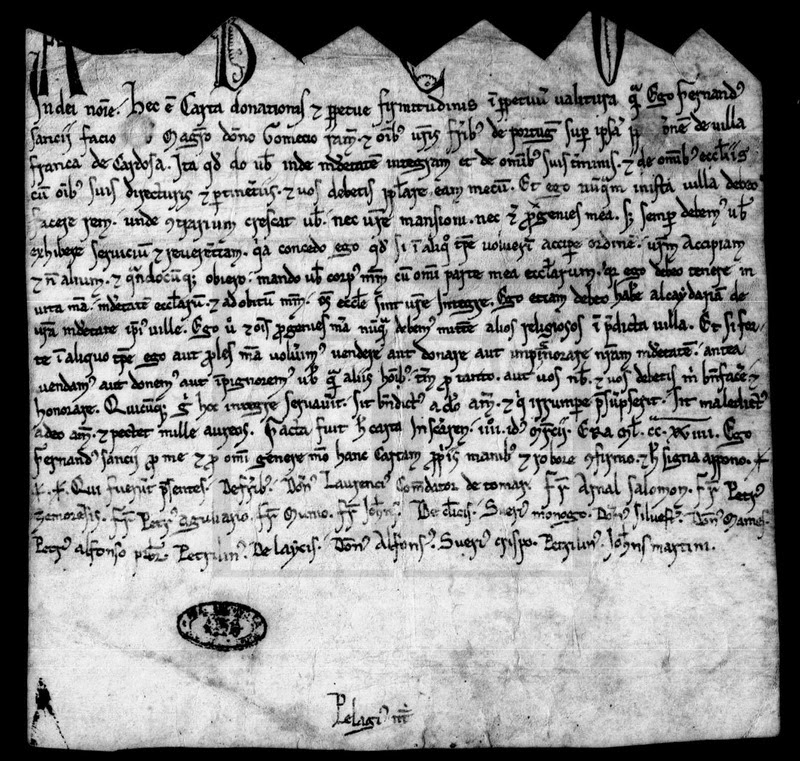 A B C D
In dei noīe. Hec ē Carta donationis ⁊ ꝑpetue firmitudinis ī ꝑpetuū valitura q̄ Ego Fernandꝰ
sancii facio Magrō dōno Gomecio ⁊ oībꝰ ur̄is fr̄ibꝰ de portugꝉ suꝑ ip̄sa de villa
franca de Cardosa. Ita qd̄ do uƀ inde med̓etatem integram et de om̄ibꝰ suis t̓minis. ⁊ de om̄ibꝰ eccl̄iis
cū oībꝰ suis directuris ⁊ ꝑtinētiis. ⁊ vos debetis pp̄lare eam mecū. Et ego nūq̄m in ista villa debeo
facere rem. unde ꝯtrarium crescat uƀ. nec ur̄e mansioni. nec ⁊ ꝓgenies mea. sꝫ semper debemꝰ uƀ
exhibere servicium ⁊ reverētiam. q̓a concedo ego qd̄ si ī aliq̊ tp̄e voluerī accipe ordinē. ur̄m Accipiam
⁊ nō alium. ⁊ q̄ndocūqꝫ obiero. mando uƀ corpꝰ mm̄ cū om̄i parte mea eccl̄arum. ego debeo tenere in
vita mā. med̓etatē eccl̄arū. ⁊ ad obitum mm̄. eccl̄e sint ur̄e Integre. Ego etiam debeo hab̓e alcaydariā de
ur̄a med̓etate ip̄ius ville. Ego ū ⁊ oīs ꝓgenies mā nūq̄ debemꝰ mitt̓e alios religiosos ī p̄dicta villa. Et si for-
te ī aliquo tp̄e ego aut ꝓles mā volūimꝰ vendere aut donare aut impignorare nr̄am med̓etatē. antea
vendamꝰ aut donemꝰ aut īpignoremꝰ uƀ q̄ aliis hōibꝰ. tm̄ ꝓ tanto. aut vos nƀ. ⁊ vos debetis m̓ bn̄facere ⁊
honorare. Quicūqꝫ g̓ hec integre servav̓it. sit bn̄dictꝰ a dō am̄. ⁊ q̓ irrumpe p̄sūpserit. sit maledictꝰ
a deo am̄. ⁊ pectet mille aureos. Facta fuit h̄ carta In scāren̄. iiii. idꝰ m̄rcii. ERA mꝉ. cc. xviiii. Ego
Fernandꝰ sancii ꝓ me ⁊ ꝓ om̄i genere m̄o hanc Cartam ꝓpriis manibꝰ ⁊ robore ꝯfirmo. ⁊ h̄ signa appono. ✝
✝. ✝. Qui fuerūt p̄sentes. De fr̄ibꝰ. Dōnꝰ Laurenciꝰ Com̄dator de tomar. Fr̄ Arnal Salomon. Fr̄ Petrꝰ
zemorēsis. Fr̄ Petrꝰ aguliario. Fr̄ Munio. Fr̄ Joh̄nꝰ. De cl̓icis. Sueriꝰ monogo. Dōnꝰ Silvest̓. Dōnꝰ Mames.
Petrꝰ alfonso p̄br̄. Petrilinꝰ. De laycis. Dōnꝰ Alfonsꝰ. Sueriꝰ crispo. Petrilinꝰ. Joh̄ns martini.
Pelagiꝰ nt̄